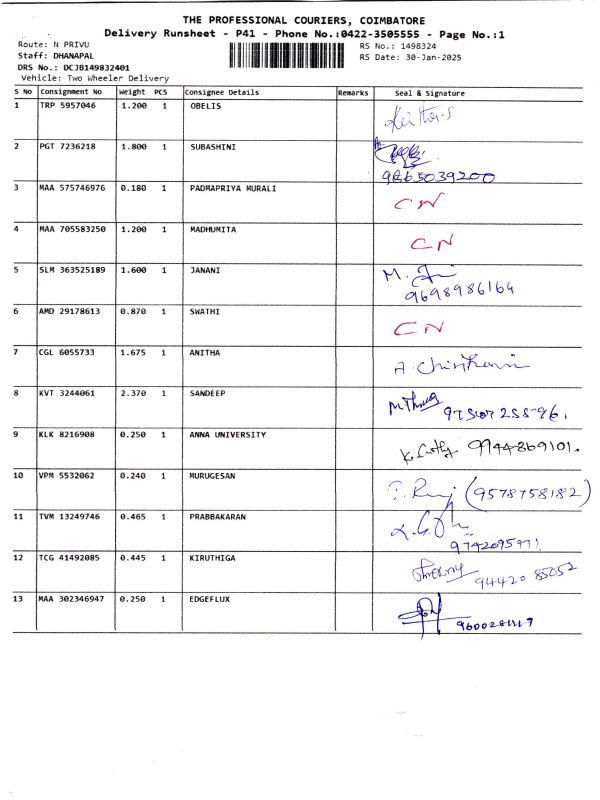 THE PROFESSIONAL COURIERS, COIMBATORE
Delivery Runsheet - P41 - Phone No.:0422-3505555 - Page No.:1
Route: N PRIVU
RS No.: 1498324
Staff: DHANAPAL
RS Date: 30-Jan-2025
DRS No.: DCJB149832401
Vehicle: Two Wheeler Delivery
S No Consignment No Weight PCS Consignee Details Remarks Seal & Signature
1 TRP 5957046 1.200 1 OBELIS
2 PGT 7236218 1.800 1 SUBASHINI
9865039200
3 MAA 575746976 0.180 1 PADMAPRIYA MURALI CN
4 MAA 705583250 1.200 1 MADHUMITA CN
5 SLM 363525189 1.600 1 JANANI M.
9698986164
6 AMD 29178613 0.870 1 SWATHI CN
7 CGL 6055733 1.675 1 ANITHA A.
8 KVT 3244061 2.370 1 SANDEEP
9 KLK 8216908 0.250 1 ANNA UNIVERSITY 9944869101.
10 VPM 5532062 0.240 1 MURUGESAN (9578758182)
11 TVM 13249746 0.465 1 PRABBAKARAN
9742095971
12 TCG 41492085 0.445 1 KIRUTHIGA
94420 85052
13 MAA 302346947 0.250 1 EDGEFLUX